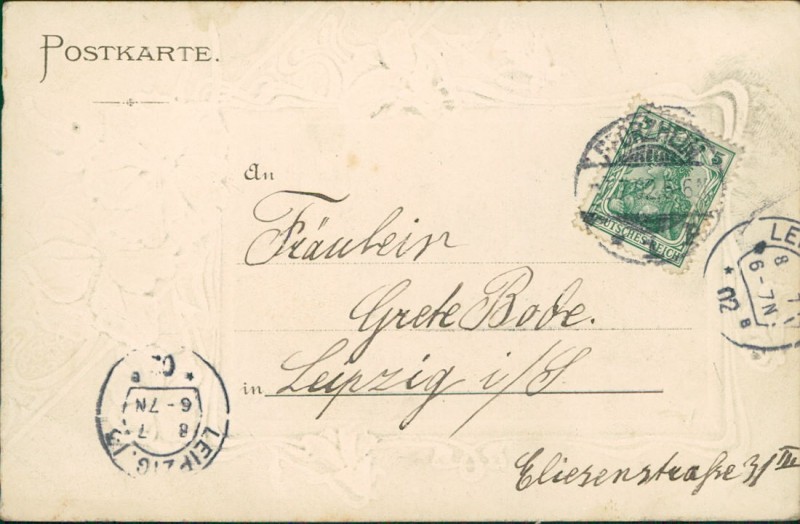 POSTKARTE.
An
Fräulein
Grete Bode.
in Leipzig i/S
Eliesenstraße 31 III
5
DEUTSCHES REICH
LEI
8 7
6-7N
02
B
LEIPZIG.13
8 7
6-7N